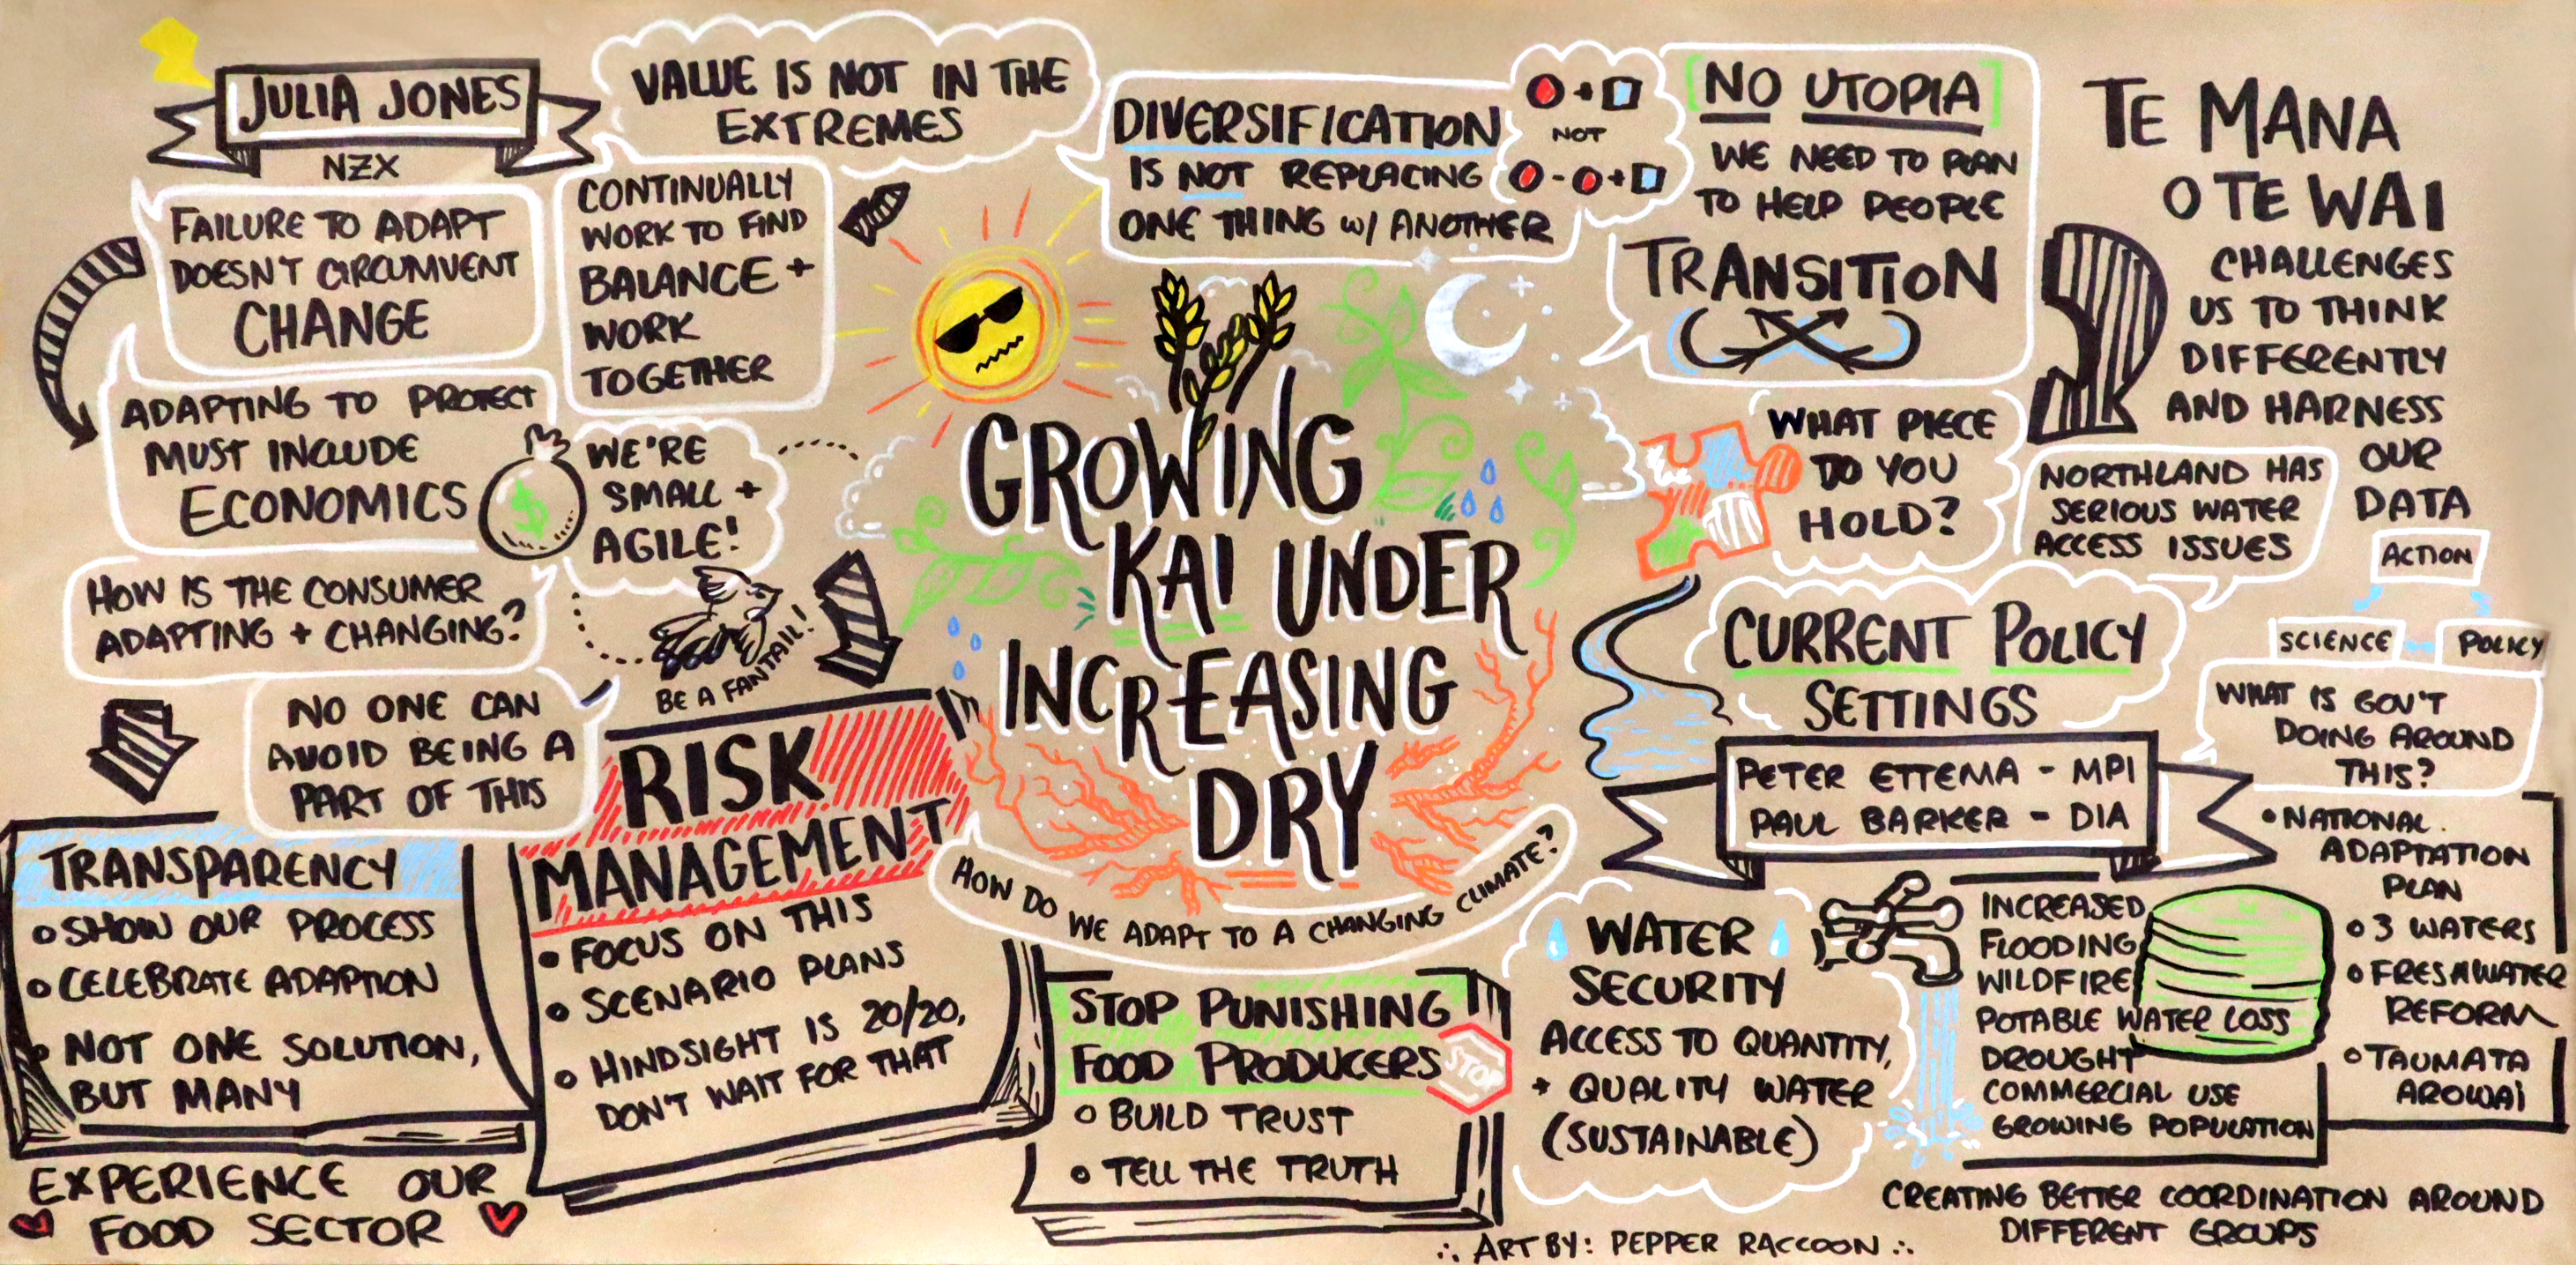 JULIA JONES
NZX
VALUE IS NOT IN THE
EXTREMES
FAILURE TO ADAPT
DOESN'T CIRCUMVENT
CHANGE
CONTINUALLY
WORK TO FIND
BALANCE +
WORK
TOGETHER
ADAPTING TO PROTECT
MUST INCLUDE
ECONOMICS
$
WE'RE
SMALL +
AGILE!
HOW IS THE CONSUMER
ADAPTING + CHANGING?
BE A FANTAIL!
NO ONE CAN
AVOID BEING A
PART OF THIS
TRANSPARENCY
SHOW OUR PROCESS
CELEBRATE ADAPTION
NOT ONE SOLUTION,
BUT MANY
EXPERIENCE OUR
FOOD SECTOR
RISK
MANAGEMENT
FOCUS ON THIS
SCENARIO PLANS
HINDSIGHT IS 20/20,
DON'T WAIT FOR THAT
DIVERSIFICATION
IS NOT REPLACING
ONE THING W/ ANOTHER
+
NOT
- +
GROWING
KAI UNDER
INCREASING
DRY
HOW DO WE ADAPT TO A CHANGING CLIMATE?
STOP PUNISHING
FOOD PRODUCERS
STOP
BUILD TRUST
TELL THE TRUTH
[NO UTOPIA]
WE NEED TO PLAN
TO HELP PEOPLE
TRANSITION
WHAT PIECE
DO YOU
HOLD?
TE MANA
O TE WAI
CHALLENGES
US TO THINK
DIFFERENTLY
AND HARNESS
OUR
DATA
ACTION
SCIENCE
POLICY
NORTHLAND HAS
SERIOUS WATER
ACCESS ISSUES
CURRENT POLICY
SETTINGS
PETER ETTEMA - MPI
PAUL BARKER - DIA
WHAT IS GOV'T
DOING AROUND
THIS?
NATIONAL
ADAPTATION
PLAN
3 WATERS
FRESHWATER
REFORM
TAUMATA
AROWAI
WATER
SECURITY
ACCESS TO QUANTITY,
+ QUALITY WATER
(SUSTAINABLE)
INCREASED
FLOODING
WILDFIRE
POTABLE WATER LOSS
DROUGHT
COMMERCIAL USE
GROWING POPULATION
CREATING BETTER COORDINATION AROUND
DIFFERENT GROUPS
ART BY: PEPPER RACCOON